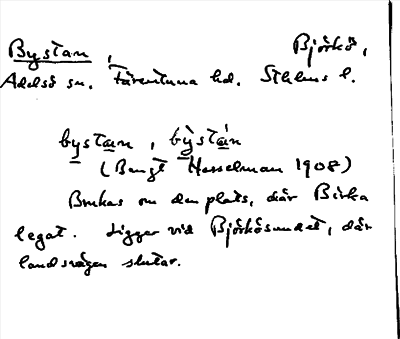 Bystan, Björkö,
Adelsö sn. Färentuna hd. Sthlms l.
bystan, bỳstán
(Bengt Hesselman 1908)
Brukas om den plats, där Birka
legat. Ligger vid Björkösundet, där
landsvägen slutar.